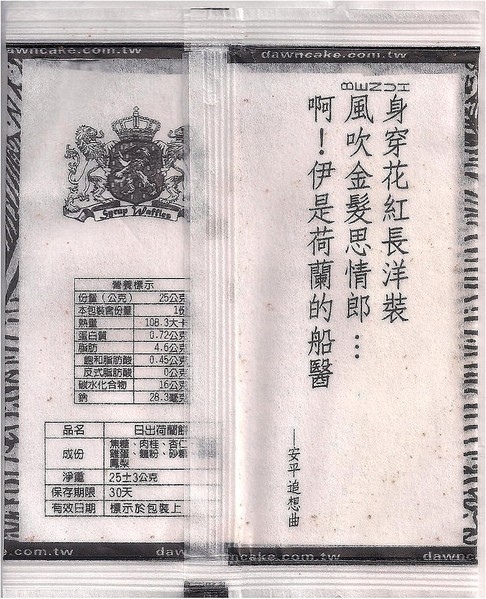 dawncake.com.tw
dawncake.com.tw
Syrup Waffles
營養標示
份量（公克） 25公克
本包裝含份量 1份
熱量 108.3大卡
蛋白質 0.72公克
脂肪 4.6公克
飽和脂肪酸 0.45公克
反式脂肪酸 0公克
碳水化合物 16公克
鈉 28.3毫克
品名 日出荷蘭餅
成份 焦糖、肉桂、杏仁
雞蛋、麵粉、砂糖
鳳梨
淨重 25±3公克
保存期限 30天
有效日期 標示於包裝上
身穿花紅長洋裝
風吹金髮思情郎…
啊！伊是荷蘭的船醫
—安平追想曲
e.com.tw
dawncake.com.tw
dawn